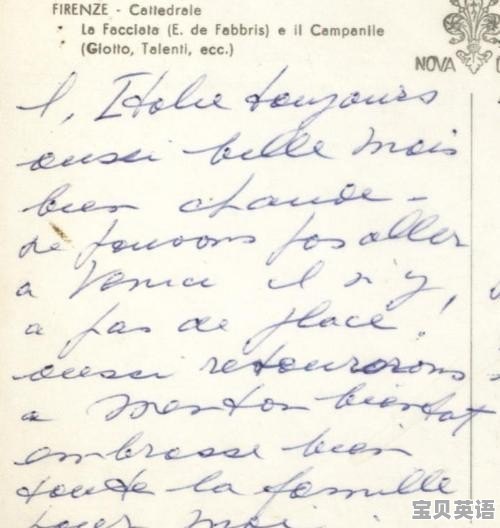 FIRENZE - Cattedrale
La Facciata (E. de Fabbris) e il Campanile
(Giotto, Talenti, ecc.)
NOVA
l'Italie toujours
aussi belle mais
bien chaude -
ne pouvons pas aller
a Venise il n'y
a pas de place!
aussi retournerons
a Menton bientot
embrasse bien
toute la famille
pour moi
宝贝英语